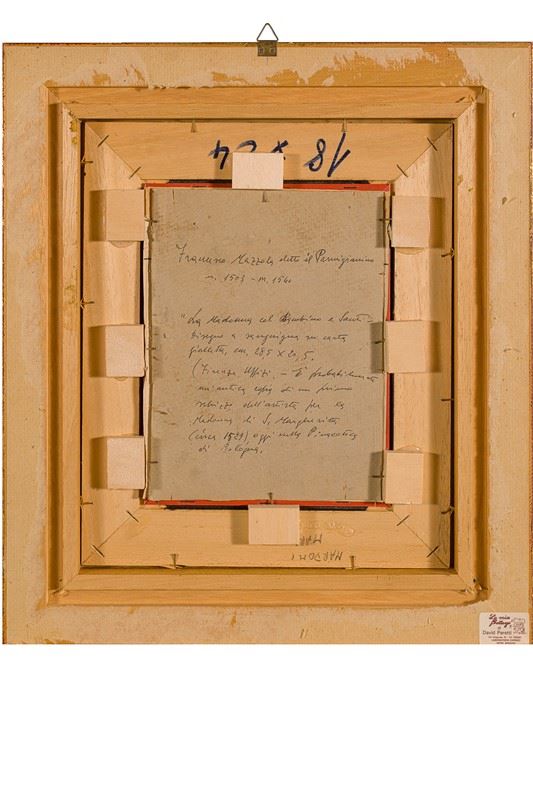 18 x 24
Francesco Mazzola detto il Parmigianino
n. 1503 - m. 1540
"La Madonna col Bambino e Santi -
Disegno a sanguigna su carta
gialletta, cm. 28,5 x 20,5.
(Firenze Uffizi. - È probabilmente
un'antica copia di un primo
schizzo dell'artista per la
Madonna di S. Margherita
(circa 1529), oggi nella Pinacoteca
di Bologna.
MARRONI
La mia
Bottega
di
David Paretti